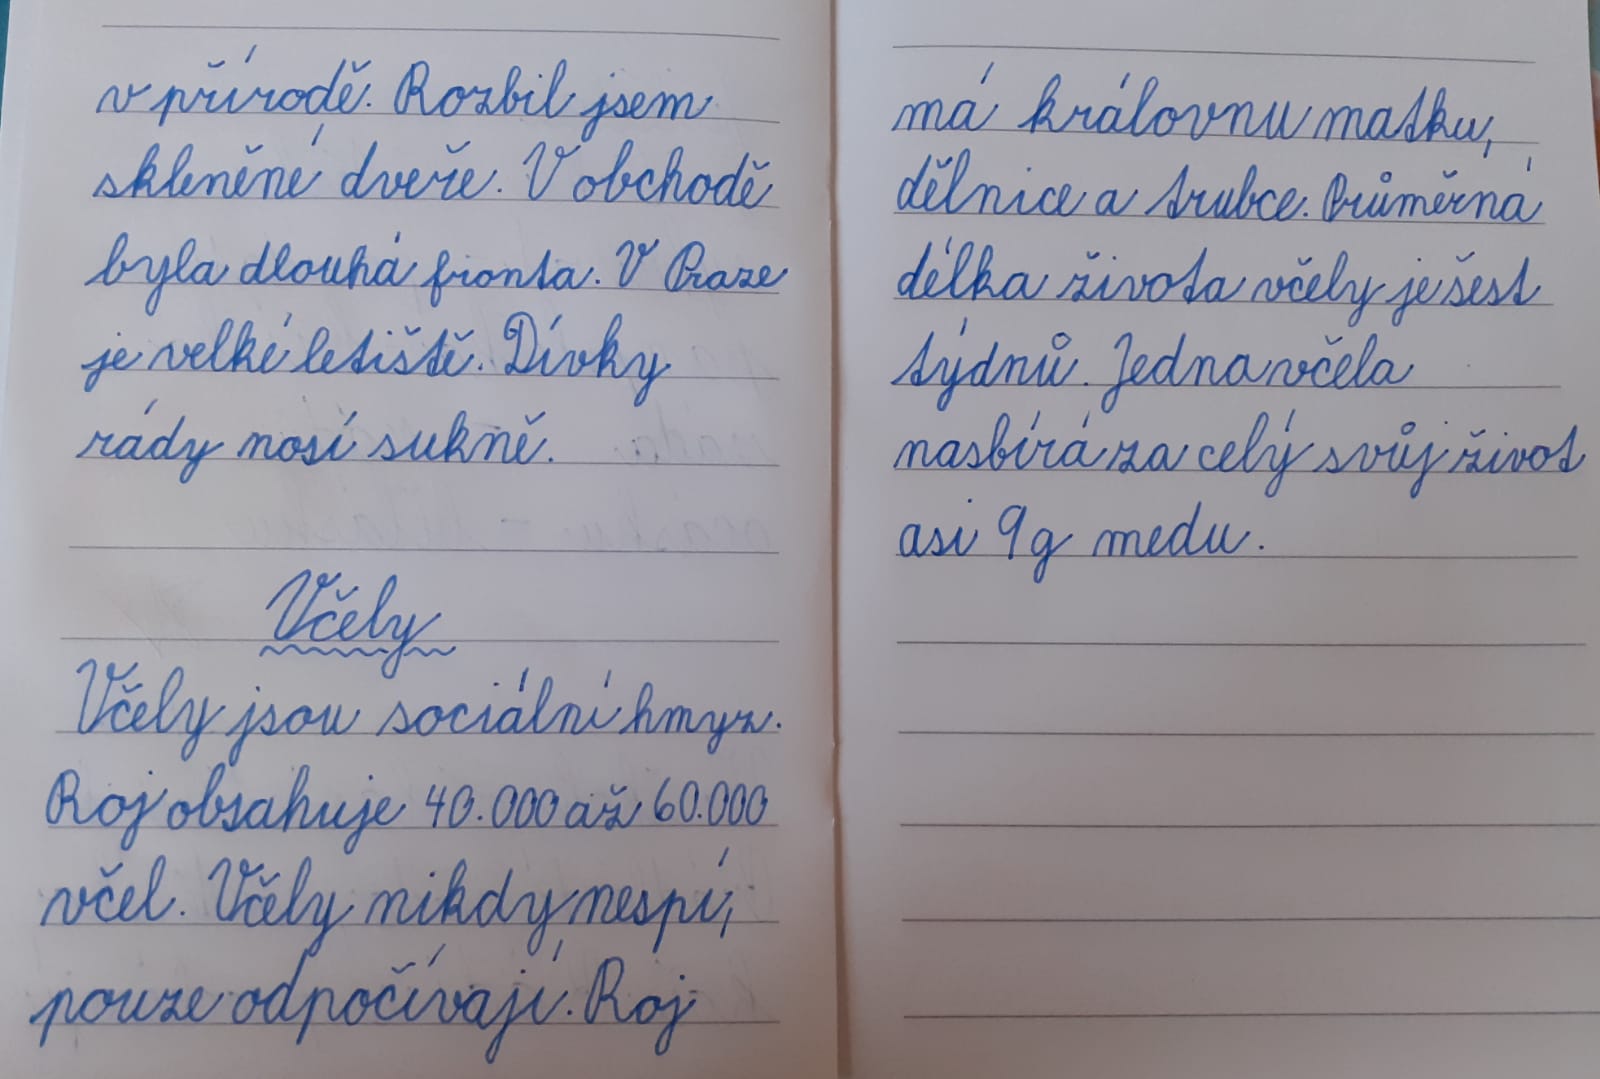 v přírodě. Rozbil jsem
skleněné dveře. V obchodě
byla dlouhá fronta. V Praze
je velké letiště. Dívky
rády nosí sukně.
Včely
Včely jsou sociální hmyz.
Roj obsahuje 40.000 až 60.000
včel. Včely nikdy nespí,
pouze odpočívají. Roj
má královnu matku,
dělnice a trubce. Průměrná
délka života včely je šest
týdnů. Jedna včela
nasbírá za celý svůj život
asi 9g medu.